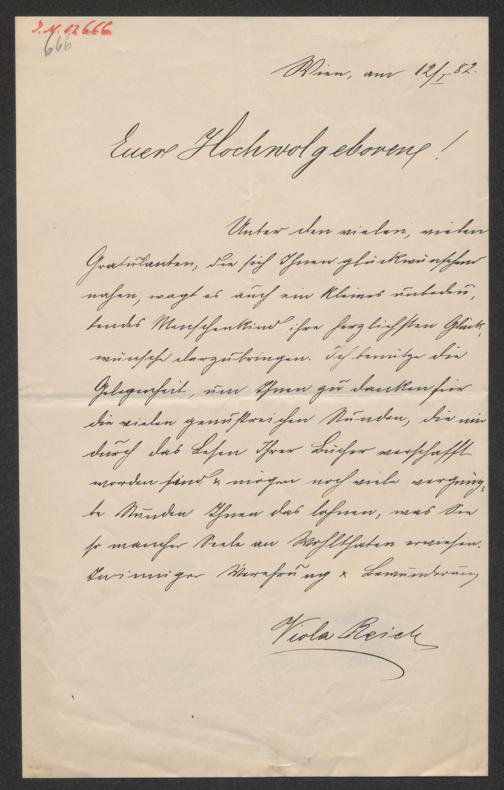 J. N. 12666
666
Wien, am 12/I 82.
Euer Hochwolgeboren!
Unter den vielen, vielen
Gratulanten, die sich Ihnen glückwünschend
nahen, wagt es auch ein kleines unbedeu-
tendes Menschenkind ihre herzlichsten Glück-
wünsche darzubringen. Ich benütze die
Gelegenheit, um Ihnen zu danken für
die vielen genußreichen Stunden, die mir
durch das Lesen Ihrer Bücher verschafft
worden sind & mögen noch viele vergnüg-
te Stunden Ihnen das lohnen, was Sie
so mancher Seele an Wohlthaten erwiesen.
In inniger Verehrung & Bewunderung
Viola Reich